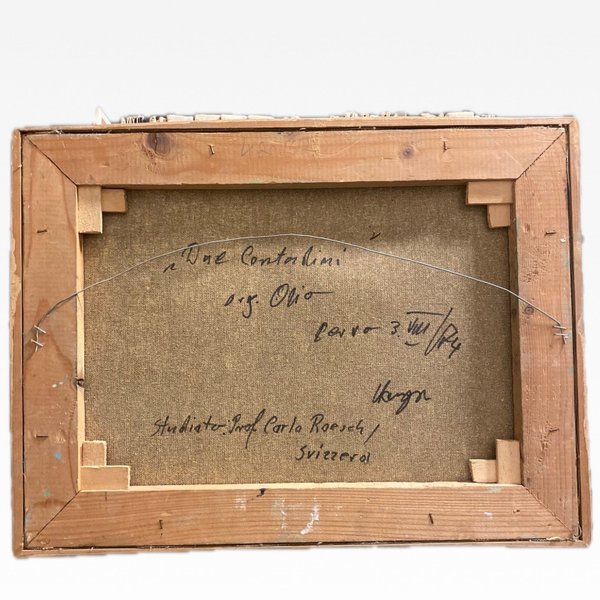 "Due Contadini
org. Olio
3. VIII/84
Studiato: Prof. Carlo Roesch,
Svizzera